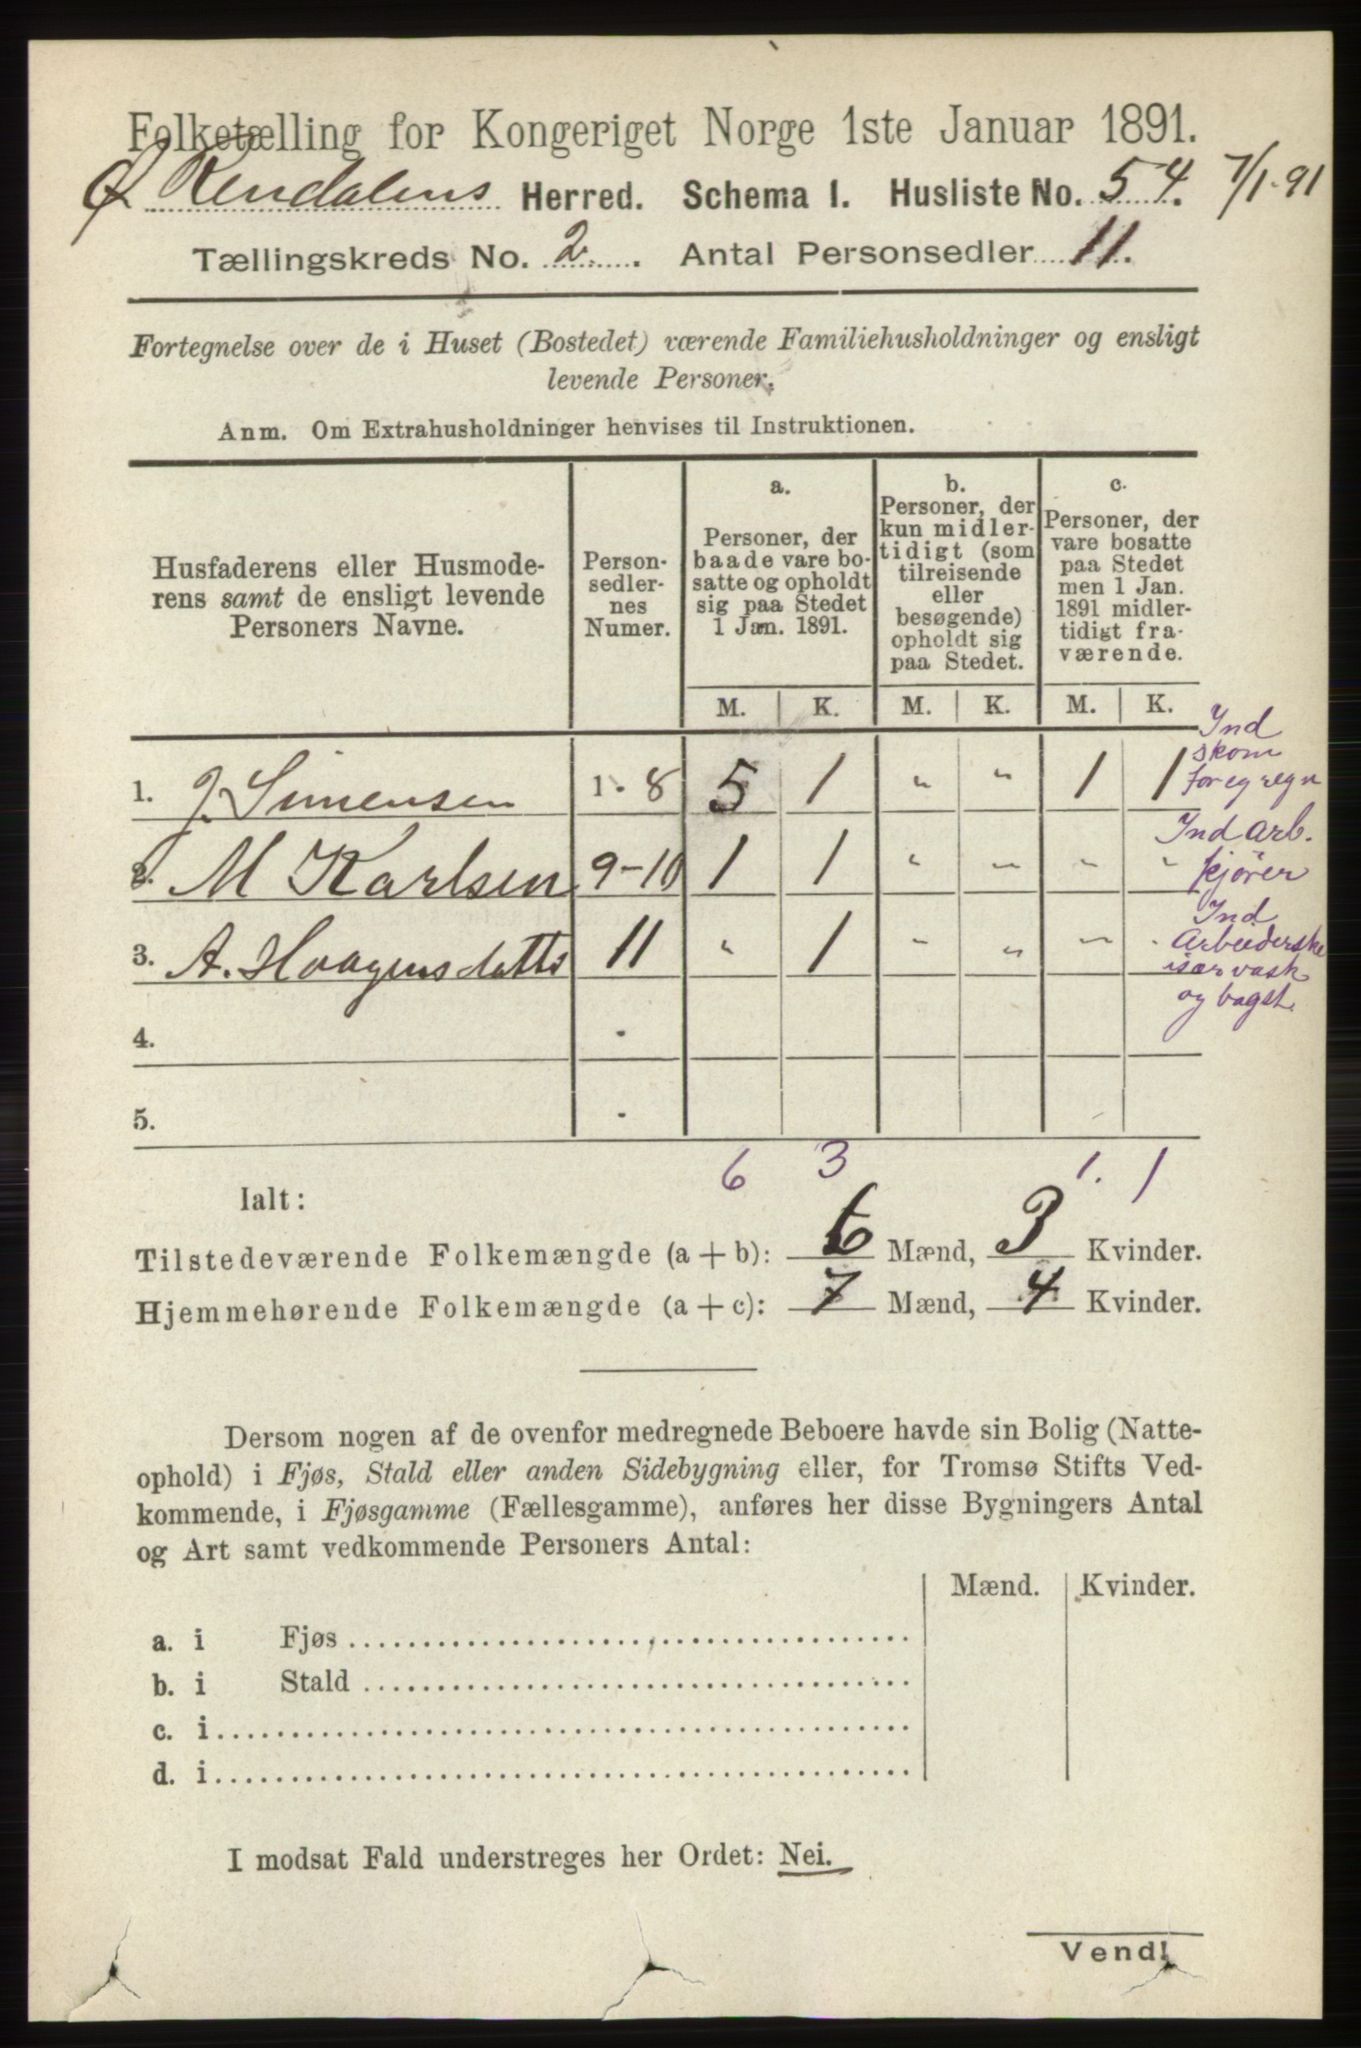 Folketælling for Kongeriget Norge 1ste Januar 1891.
Ø Rendalens Herred. Schema I. Husliste No. 54. 7/1-91
Tællingskreds No. 2. Antal Personsedler 11.
Fortegnelse over de i Huset (Bostedet) værende Familiehusholdninger og ensligt
levende Personer.
Anm. Om Extrahusholdninger henvises til Instruktionen.
Husfaderens eller Husmode-
rens samt de ensligt levende
Personers Navne.
Person-
sedler-
nes
Numer.
a.
Personer, der
baade vare bo-
satte og opholdt
sig paa Stedet
1 Jan. 1891.
b.
Personer, der
kun midler-
tidigt (som
tilreisende
eller
besøgende)
opholdt sig
paa Stedet.
c.
Personer, der
vare bosatte
paa Stedet
men 1 Jan.
1891 midler-
tidigt fra-
værende.
M. K. M. K. M. K.
1. J. Simensen 1-8 5 1 " " 1 1
Ind
skom
for eg regn
2. M Karlsen 9-10 1 1 " " " "
Ind arb.
kjører
3. A. Haagensdatte 11 " 1 " " " "
Ind
Arbeiderske
især vask
og bagst.
4.
5.
6 3 1. 1
Ialt:
Tilstedeværende Folkemængde (a + b): 6 Mænd, 3 Kvinder.
Hjemmehørende Folkemængde (a + c): 7 Mænd, 4 Kvinder.
Dersom nogen af de ovenfor medregnede Beboere havde sin Bolig (Natte-
ophold) i Fjøs, Stald eller anden Sidebygning eller, for Tromsø Stifts Ved-
kommende, i Fjøsgamme (Fællesgamme), anføres her disse Bygningers Antal
og Art samt vedkommende Personers Antal:
Mænd. Kvinder.
a. i Fjøs
b. i Stald
c. i
d. i
I modsat Fald understreges her Ordet: Nei.
Vend!